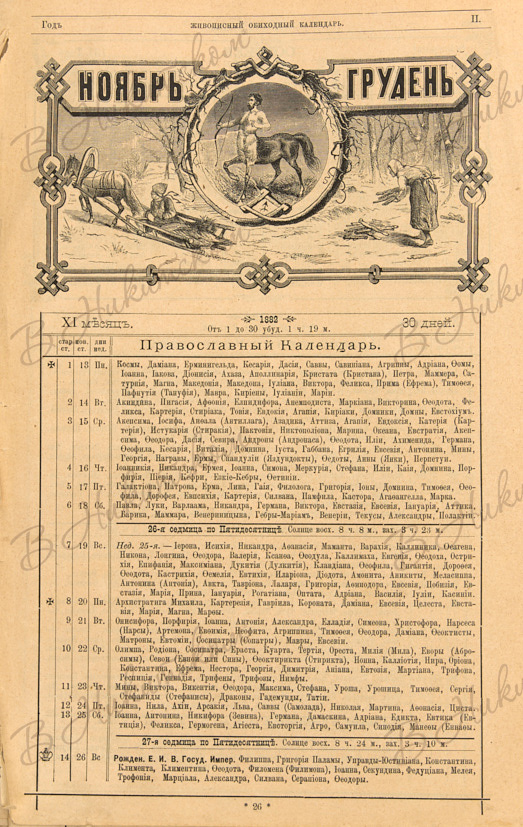 Годъ
ЖИВОПИСНЫЙ ОБИХОДНЫЙ КАЛЕНДАРЬ.
II.
НОЯБРЬ
ГРУДЕНЬ
XI мѣсяцъ.
1882
Отъ 1 до 30 убуд. 1 ч. 19 м.
30 дней.
стар. ст.
нов. ст.
дни нед.
Православный Календарь.
1 13 Пн. Космы, Даміана, Ерминингельда, Кесарія, Дасія, Саввы, Савиніана, Агриппы, Адріана, Ѳомы,
Іоанна, Іакова, Діонисія, Ахаза, Аполлинарія, Кристата (Кристана), Петра, Маммера, Са-
турнія, Магна, Македонія, Македона, Іуліана, Виктора, Феликса, Прима (Ефрема), Тимоѳея,
Папнутія (Тапуфія), Мавра, Киріены, Іуліаніи, Маріи.
2 14 Вт. Акиндина, Пигасія, Афѳонія, Елпидифора, Анемподиста, Маркіана, Викторина, Ѳеодота, Фе-
ликса, Картерія, Стиріака, Товія, Евдокія, Агапія, Киріаки, Домники, Домны, Евстохіумъ.
3 15 Ср. Акепсима, Іосифа, Аиѳала (Антилага), Азадина, Аттика, Агапія, Евдоксія, Катерія (Кар-
терія), Истукарія (Стиракія), Пактовія, Никтополіона, Марина, Океана, Евстратія, Акеп-
сима, Ѳеодора, Дасія, Севира, Андроны (Андронаса), Ѳеодота, Иліи, Ахименида, Германа,
Ѳеофила, Кесарія, Виталія, Домнина, Іуста, Габбана, Егрилія, Евсевія, Антонина, Мины,
Георгія, Награны, Ермы, Снандуліи (Яздундокты), Ѳеодоты, Анны (Янки), Перпетуи.
4 16 Чт. Іоанникія, Никандра, Ермея, Іоанна, Симона, Меркурія, Стефана, Иліи, Каія, Домнина, Пор-
фирія, Піерія, Кефри, Езкіо-Кебры, Ѳетиніи.
5 17 Пт. Галактіона, Патрова, Ерма, Лина, Гаія, Филолога, Григорія, Іоны, Домнина, Тимоѳея, Ѳео-
фила, Дороѳея, Евпсихія, Картерія, Силвана, Памфила, Кастора, Агаѳангелла, Марка.
6 18 Сб. Павла, Луки, Варлаама, Никандра, Германа, Виктора, Евстазія, Евсевія, Іануарія, Аттика,
Варина, Маммара, Венерницы, Гебры-Маріамъ, Венеріи, Текусы, Александры, Полактіи.
26-я седмица по Пятидесятницѣ. Солнце восх. 8 ч. 8 м., зах. 3 ч. 23 м.
7 19 Вс. Нед. 25-я. — Іерона, Исихія, Никандра, Аѳанасія, Маманта, Варахія, Каллиника, Ѳеагена,
Никона, Лонгина, Ѳеодора, Валерія, Ксанѳа, Ѳеодула, Каллимаха, Евгенія, Ѳеодоха, Острих-
ія, Епифанія, Максиміана, Дукитія (Дулкитія), Клавдіана, Ѳеофила, Гигантія, Дороѳея,
Ѳеодота, Кастрихія, Ѳемелія, Евтихія, Иларіона, Діодота, Амонита, Аникиты, Меласиппа,
Антонина (Антонія), Анкта, Тавріона, Лазаря, Григорія, Авенодора, Евсевія, Побиніи, Ев-
стазія, Марія, Прина, Іануарія, Рогатіана, Оптата, Адріана, Василія, Іуліи, Касиніи.
8 20 Пн. Архистратига Михаила, Картерезія, Гавріила, Короната, Даміана, Евсевія, Целеста, Евста-
вія, Марія, Магна, Мавры.
9 21 Вт. Онисифора, Порфирія, Іоанна, Антонія, Александра, Елладія, Симеона, Христофора, Нарсеса
(Нарсы), Артемона, Евѳимія, Неофита, Агриппина, Тимоѳея, Ѳеодора, Даміана, Ѳеоктисты,
Матроны, Евтоміи, Сосипатры (Сопатры), Мавры, Евсевіи.
10 22 Ср. Олимпа, Родіона, Сосипатра, Ераста, Куарта, Тертія, Ореста, Милія (Мила), Еворы (Абро-
симы), Сееои, Ѳеоктириста (Стирикта), Нонна, Каллюпія, Нира, Оріона,
Константина, Ефрема, Нестора, Георгія, Димитрія, Аніана, Евтовія, Мартіана, Трифона,
Респиція, Геннадія, Трифены, Трифоны, Нимфы.
11 23 Чт. Мины, Виктора, Викентія, Ѳеодора, Максима, Стефана, Уроша, Урошица, Тимоѳея, Сергія,
Стефаниды (Стефанисы), Драконы, Гадемунды, Татіи.
12 24 Пт. Іоанна, Нила, Ахіи, Арсакія, Льва, Саввы (Самолада), Николая, Мартина, Аѳонасія, Циста.
13 25 Сб. Іоанна, Антонина, Никифора (Зевина), Германа, Дамаскина, Адріана, Едикта, Евтика (Ев-
тиція), Феликса, Гермогена, Агіеста, Евсторгія, Агро, Самуила, Синодія, Манеѳы (Енваѳы).
27-я седмица по Пятидесятницѣ. Солнце восх. 8 ч. 24 м., зах. 3 ч. 10 м.
14 26 Вс Рожден. Е. И. В. Госуд. Импер. Филиппа, Григорія Паламы, Управды-Юстиніана, Константина,
Климента, Климентина, Ѳеодота, Филомена (Филимона), Іоанна, Секундина, Федуціана, Мелея,
Трофонія, Марціала, Александра, Силвана, Серапіона, Ѳеодоры.
* 26 *